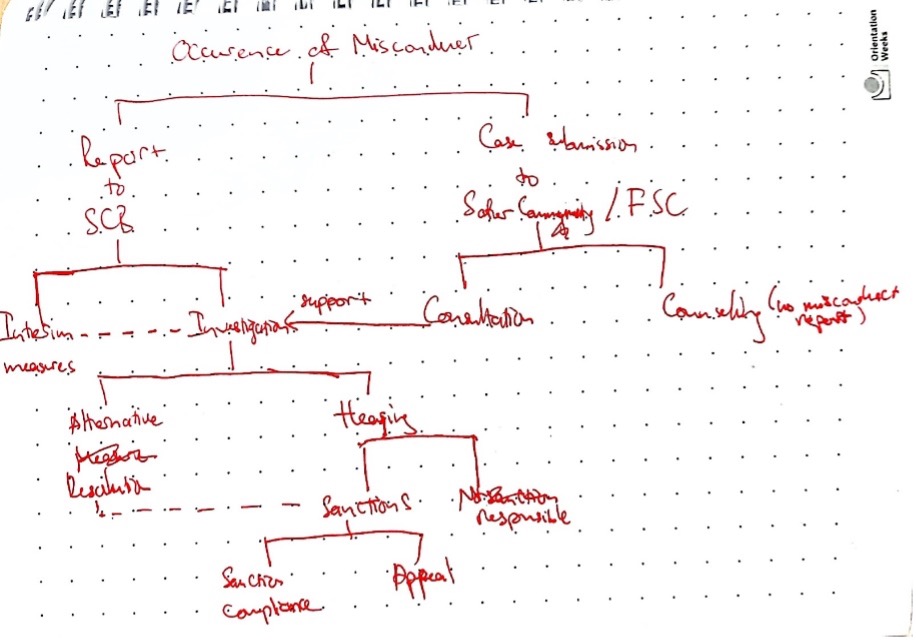 Orientation
Weeks
Occurence of Misconduct
Report
to
SCB
Case submission
to
Safer Community / FSC
Interim
measures
Investigations
support
Consultation
Counseling (no misconduct
report)
Alternative
Resolution
Hearing
Sanctions
Not
responsible
Sanction
compliance
Appeal